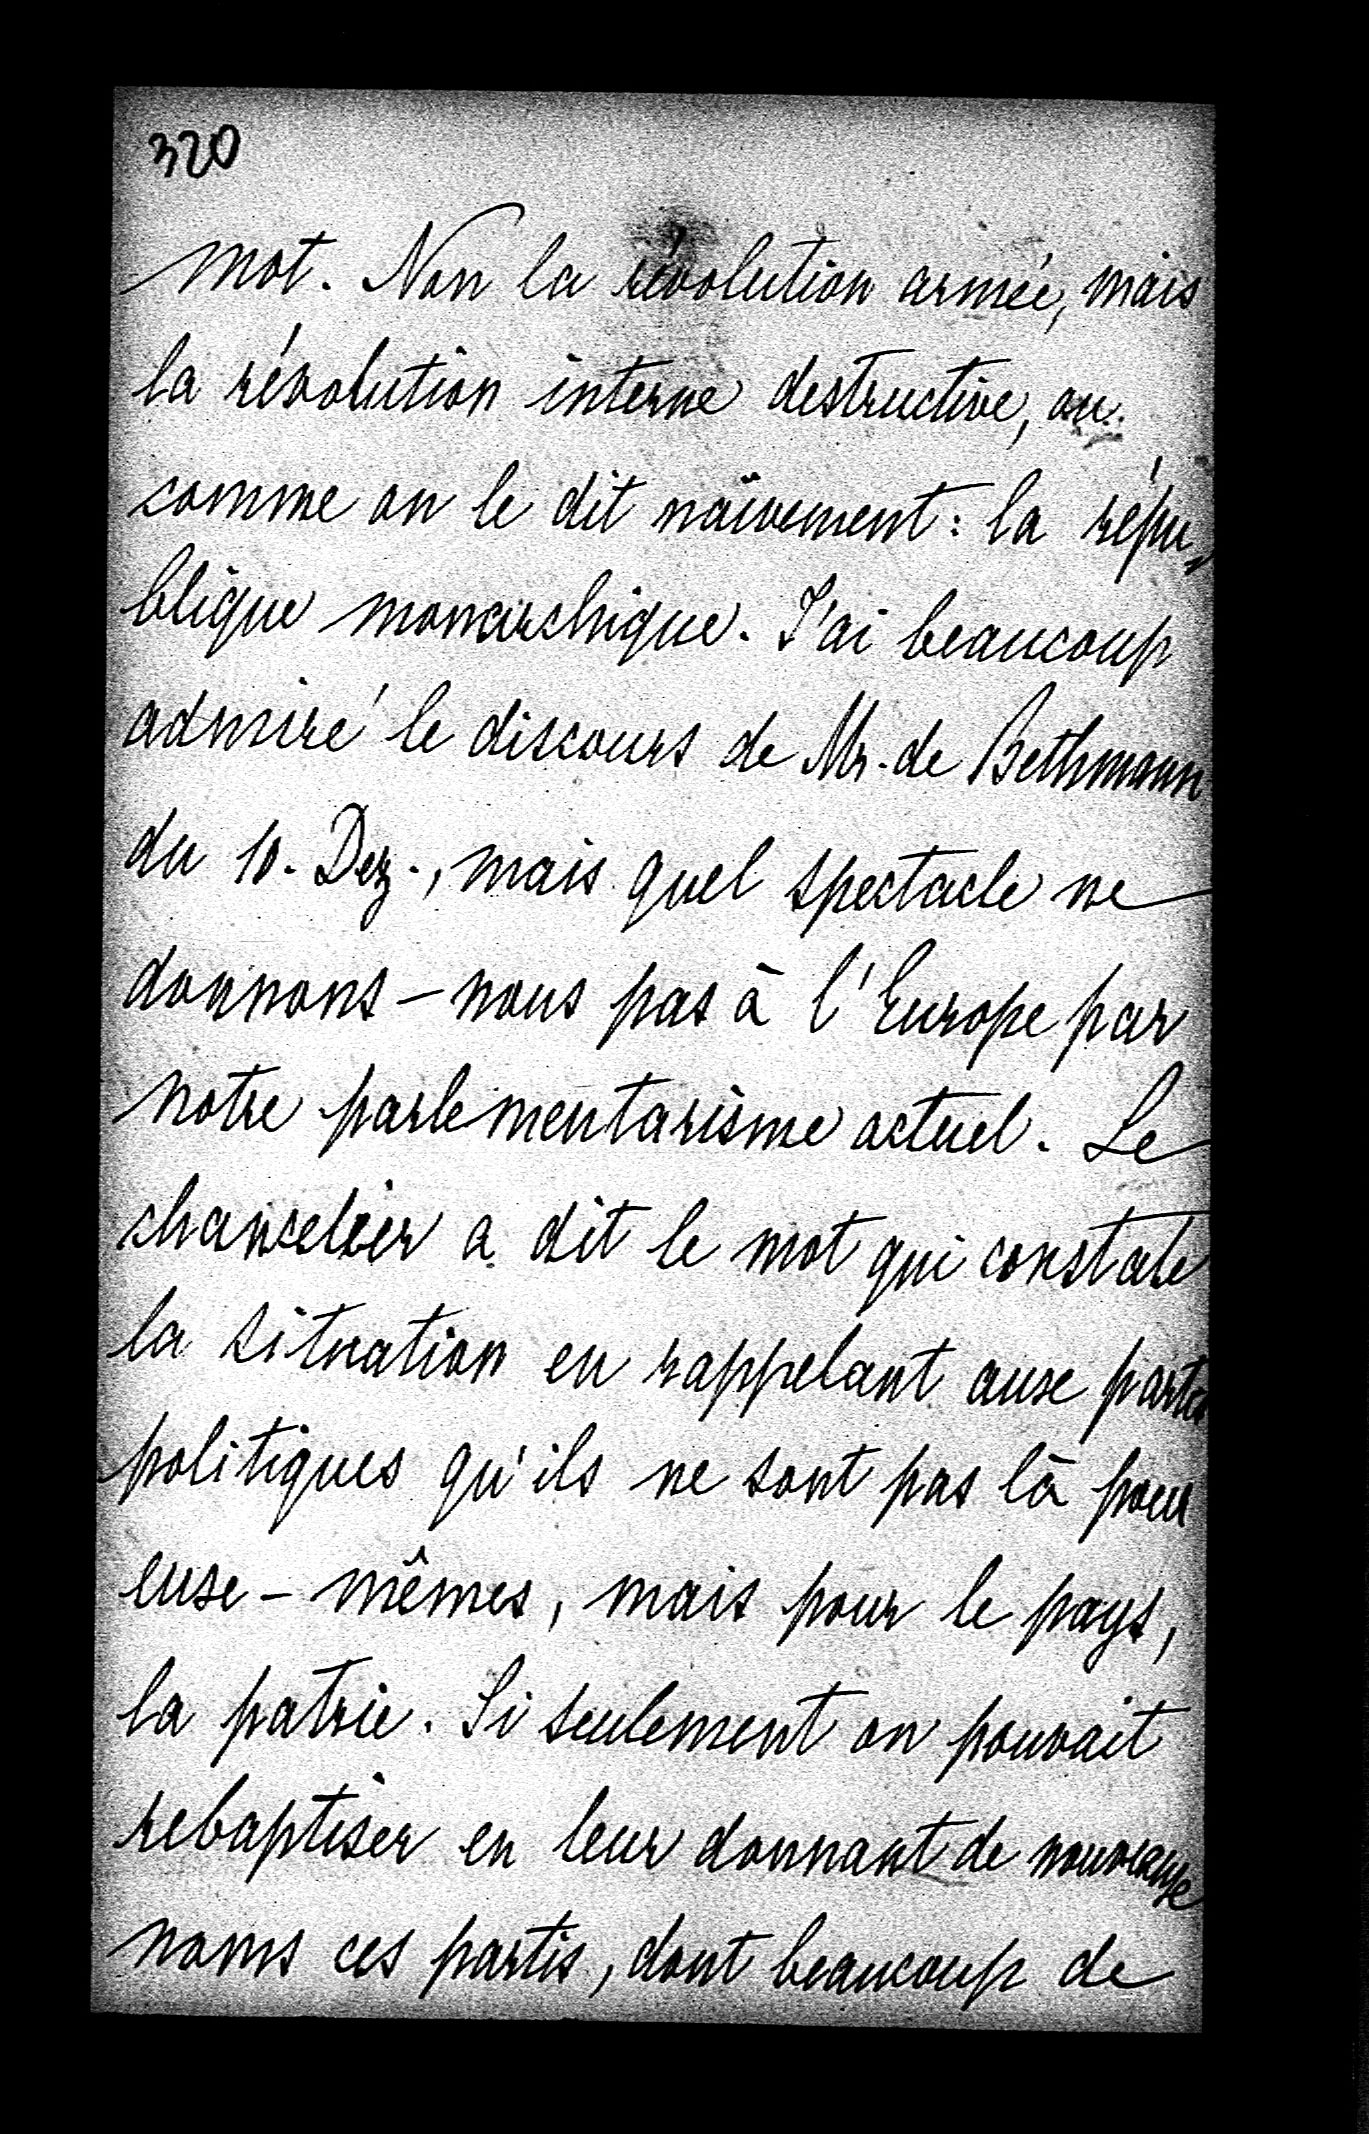 320
mot. Non la révolution armée, mais
la révolution interne destructive, ou
comme on le dit naïvement: la répu„
blique monarchique. J'ai beaucoup
admiré le discours de Mr. de Bethmann
du 10. Dez., mais quel spectacle ne
donnons-nous pas à l'Europe par
notre parlementarisme actuel. Le
chancelier a dit le mot qui constate
la situation en rappelant aux partis
politiques qu'ils ne sont pas là pour
eux-mêmes, mais pour le pays,
la patrie. Si seulement on pouvait
rebaptiser en leur donnant de nouveaux
noms ces partis, dont beaucoup de